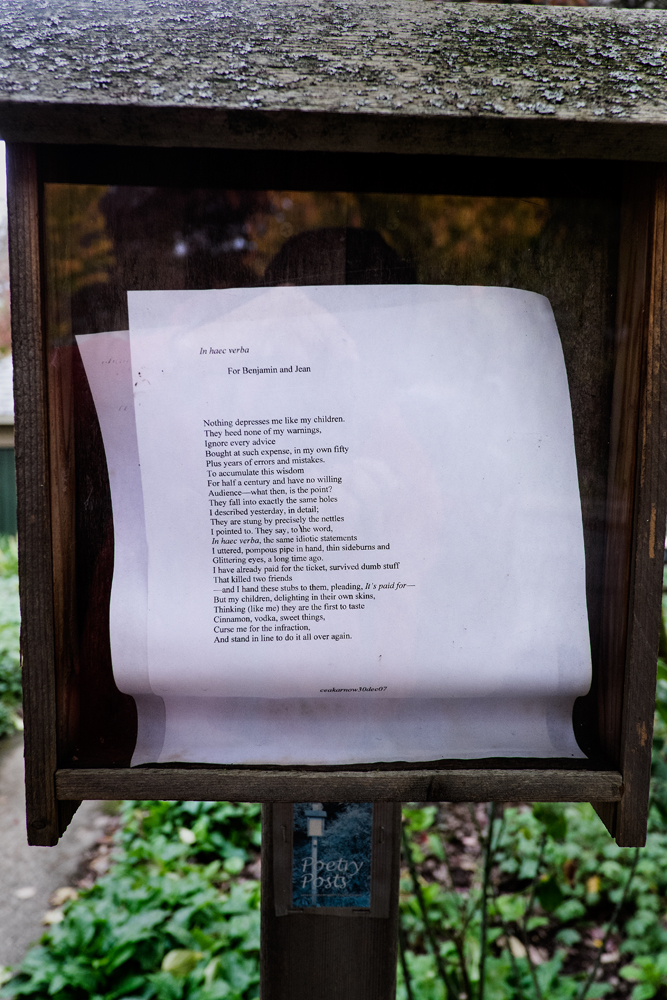 In haec verba
For Benjamin and Jean
Nothing depresses me like my children.
They heed none of my warnings,
Ignore every advice
Bought at such expense, in my own fifty
Plus years of errors and mistakes.
To accumulate this wisdom
For half a century and have no willing
Audience—what then, is the point?
They fall into exactly the same holes
I described yesterday, in detail;
They are stung by precisely the nettles
I pointed to. They say, to the word,
In haec verba, the same idiotic statements
I uttered, pompous pipe in hand, thin sideburns and
Glittering eyes, a long time ago.
I have already paid for the ticket, survived dumb stuff
That killed two friends
—and I hand these stubs to them, pleading, It's paid for—
But my children, delighting in their own skins,
Thinking (like me) they are the first to taste
Cinnamon, vodka, sweet things,
Curse me for the infraction,
And stand in line to do it all over again.
csakarnow30dec07
Poetry
Posts